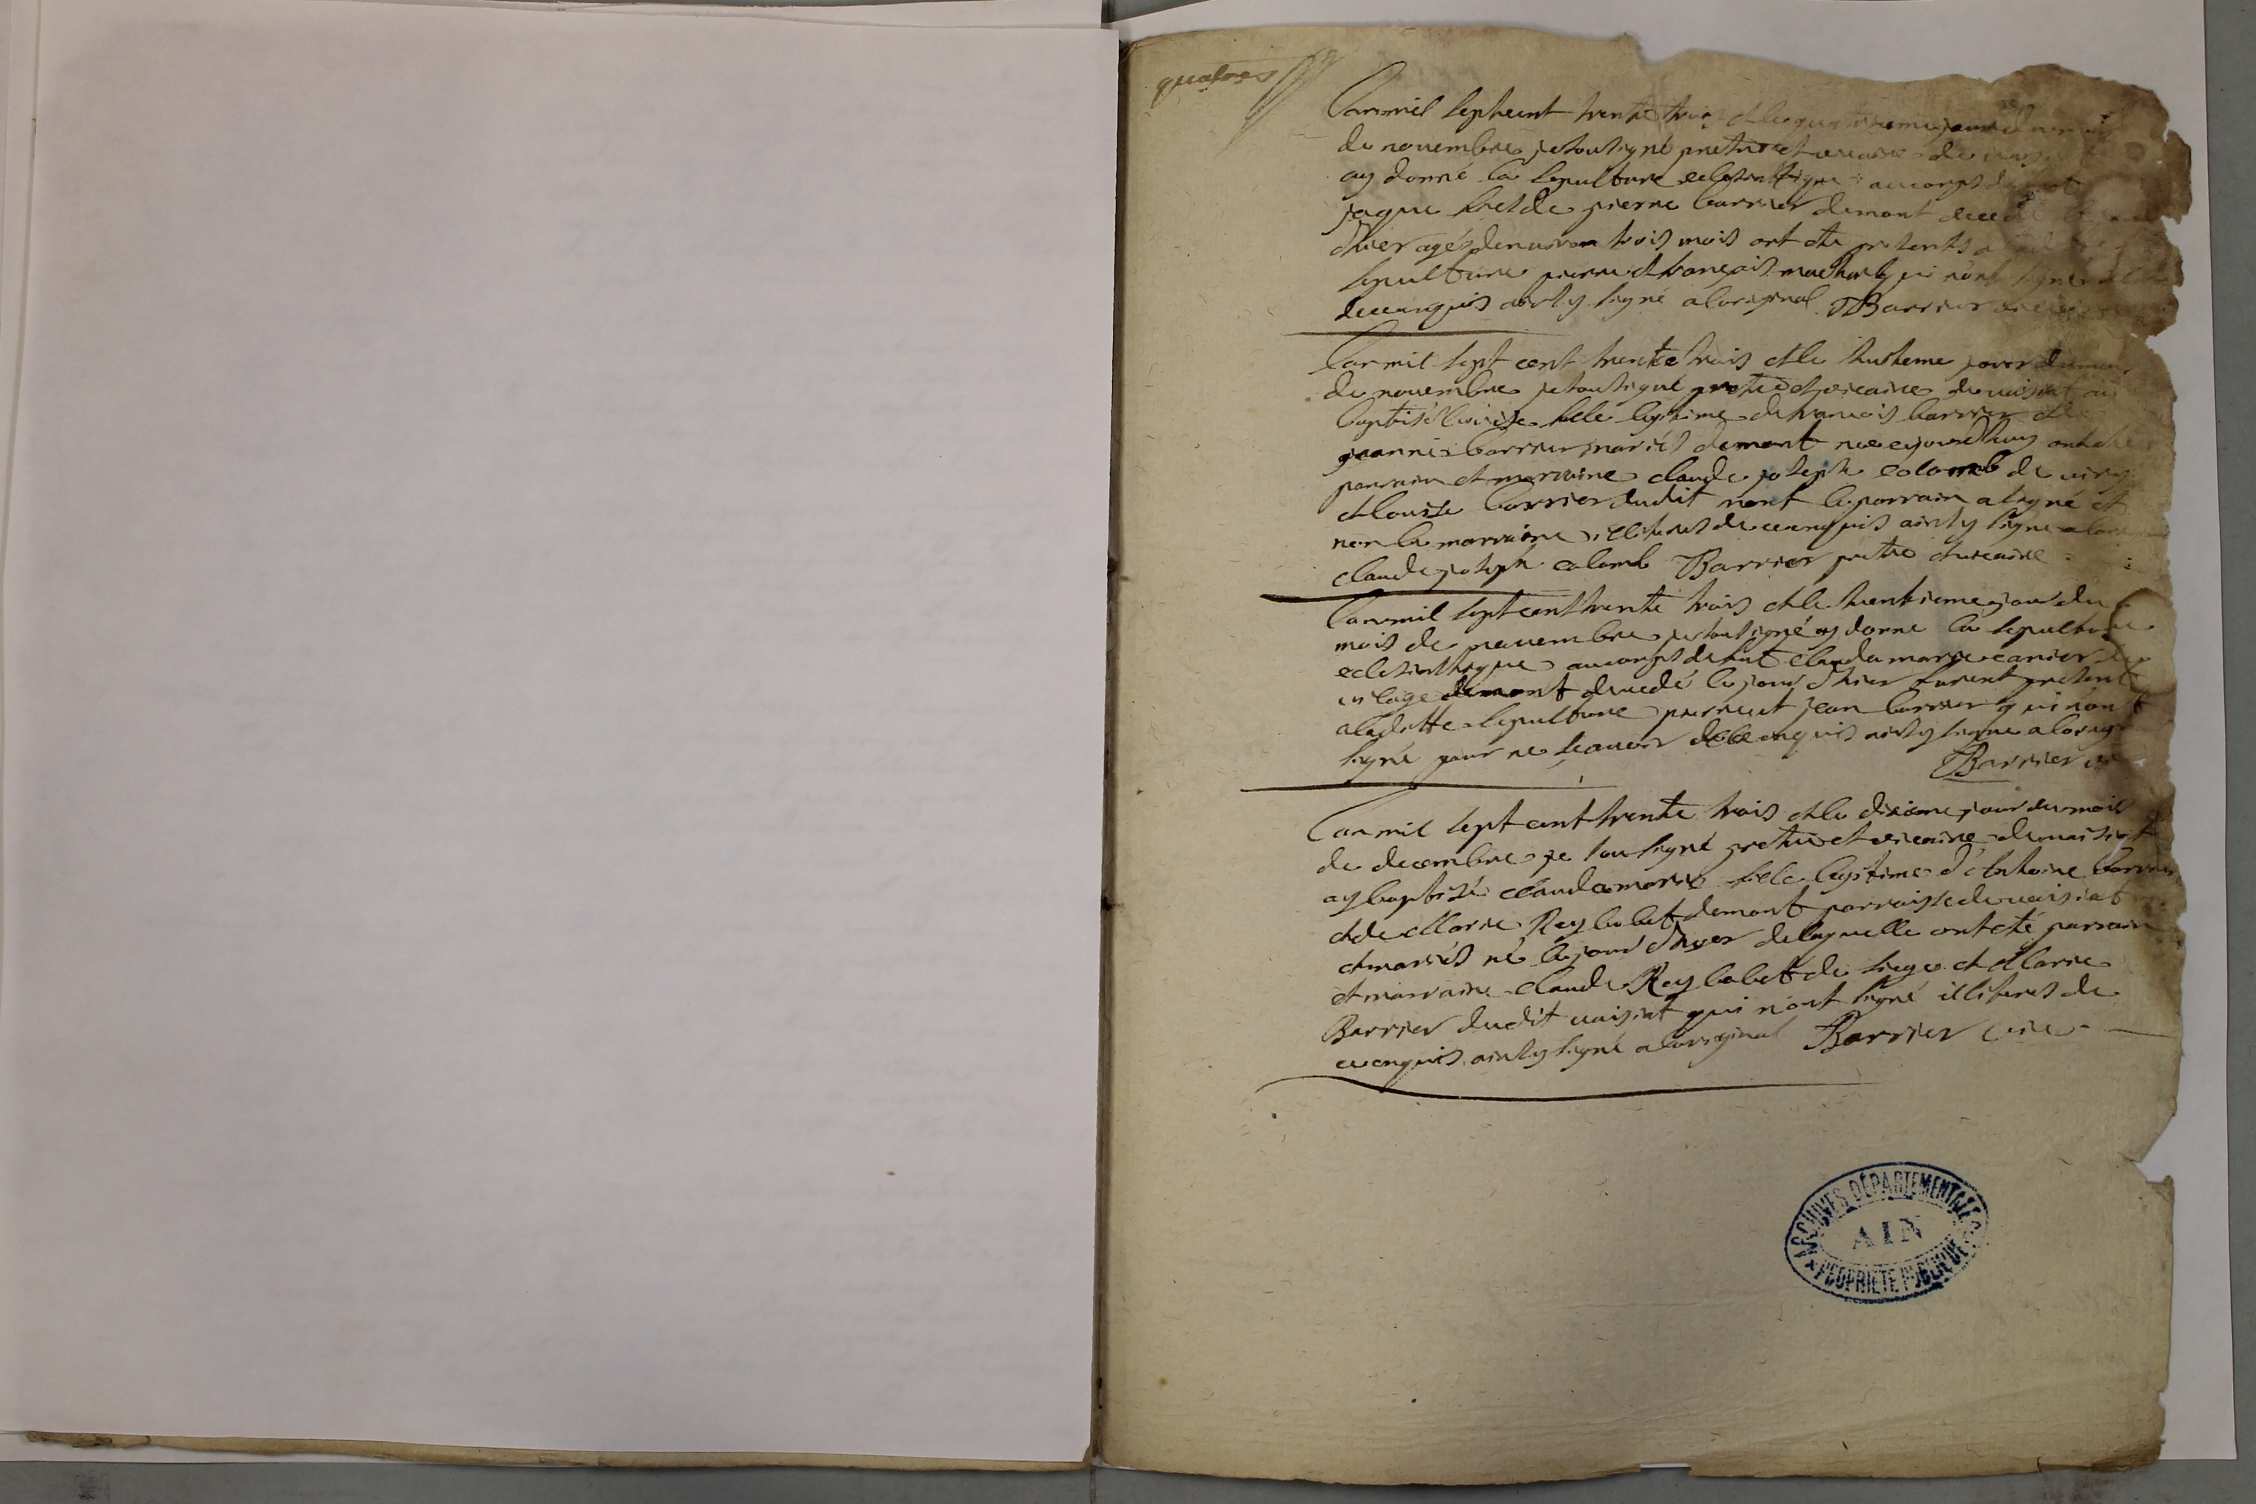 quatres
Lan mil septcent trente trois et le quatrieme jour du mois
de novembre je soussigné pretre et vicaire de
ay donné la sepulture eclesiastique au corps de
jaque fils de pierre barrier demont decedé
d'hier agé denviron trois mois ont été presents a
sepulture pierre et françois qui n'ont signé
de ce enquis ainsy signé a loriginal Barrier vicaire
Lan mil sept cent trente trois et le huitieme jour du mois
de novembre je soussigné pretre et vicaire de vaisiat ai
baptisé louise fille legitime de françois barrier et de
jeanne barrier mariés demont née ce jourdhuy ont été
parrain et marraine claude joseph colomb de
et louise barrier dudit mont le parrain a signé et
non la marraine illiteres de ce enquis ainsy signé a
claude joseph colomb Barrier pretre et vicaire
Lan mil sept cent trente trois et le trentieme jour du
mois de novembre je soussigné ay donné la sepulture
eclesiastique au corps de fut claudamarie canier
en l'age demont decedé le jour d'hier furent present
a laditte sepulture pierre et jean barrier qui n'ont
signé pour ne scavoir de ce enquis ainsy signé a
Barrier
Lan mil sept cent trente trois et le dixieme jour du mois
de decembre je soussigné pretre et vicaire de vaisiat
ay baptisé claudamarie fille legitime d'Anthoine barrier
et de Marie Rey bobet demont parroisse de vaisiat
et mariés né le jour d'hyer de laquelle ont été parrain
et marraine claude Rey bobet de siege et Marie
Barrier dudit vaisiat qui n'ont signé illiteres de
ce enquis ainsy signé a loriginal Barrier vic
ARCHIVES DÉPARTEMENTALES
AIN
PROPRIÉTÉ PUBLIQUE